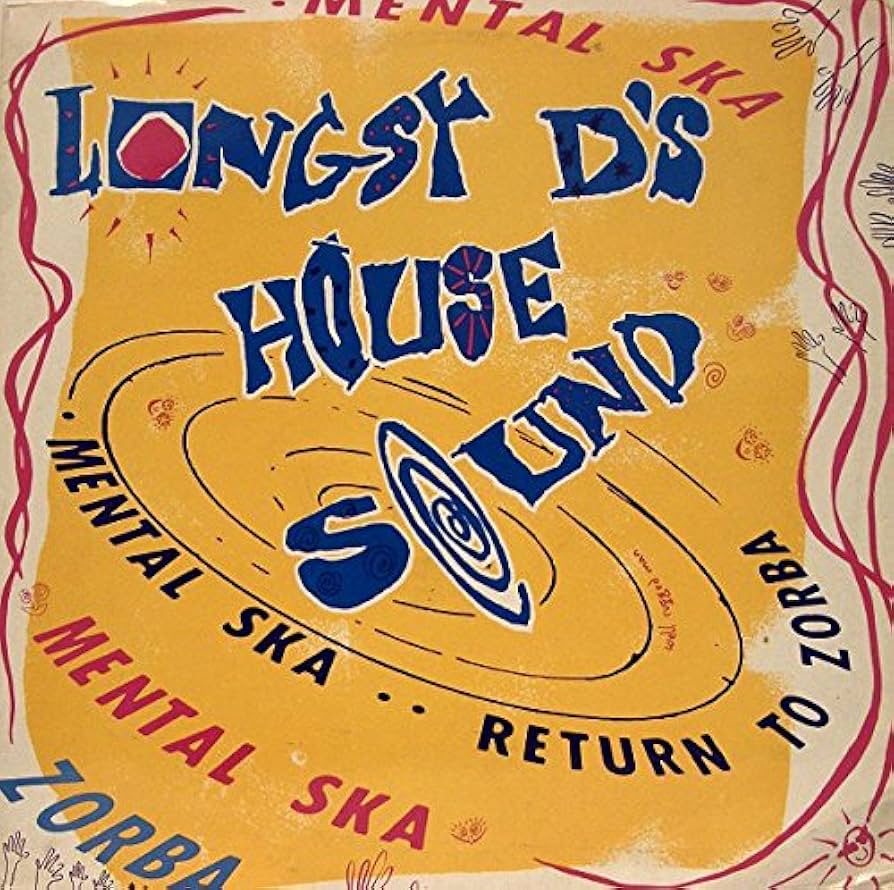 . MENTAL SKA
LONGSY D'S
HOUSE
SOUND
. MENTAL SKA . . RETURN TO ZORBA
MENTAL SKA
ZORBA